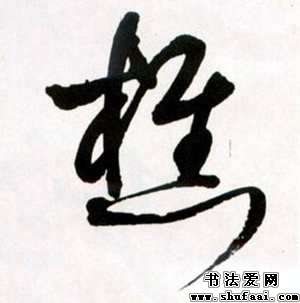 樵
书法爱网
www.shufaai.com